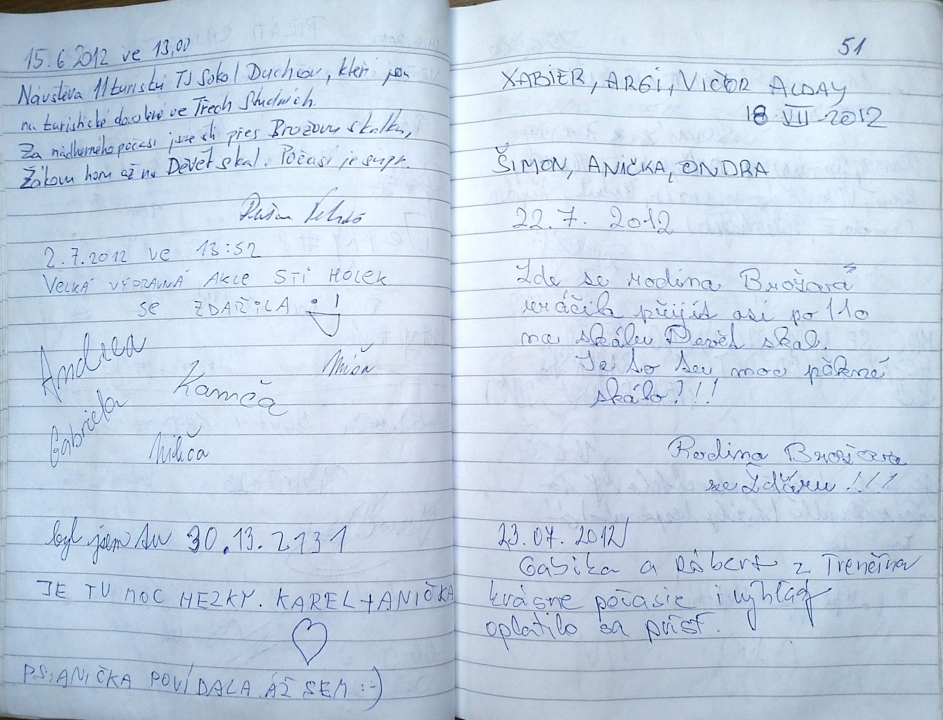 15.6 2012 ve 13,00
Návštěva 11 turistů TJ Sokol Duchcov, kteří jsou
na turistické dovolené ve Třech Studních.
Za nádherného počasí jsme šli přes Brožovu skalku,
Žákovu horu až na Devět skal. Počasí je supr.
2.7.2012 ve 13:52
VELKÁ VÝPRAVNÁ AKCE STÍ HOLEK
SE ZDAŘILA :-)
Andrea
Míša
Kamča
Gabriela
byl jsem tu 30.13.2131
JE TU MOC HEZKY. KAREL + ANIČKA
PS: ANIČKA POVÍDALA AŽ SEM :-)
51
XABIER, ARGI, VICTOR ALDAY
18 VII 2012
ŠIMON, ANIČKA, ONDRA
22.7. 2012
Zde se rodina Brožová
vráčila přijít asi po 110
na skálu Devět skal.
Je to tu moc pěkné
skálo?!!!
Rodina Brožova
ze Ždáru!!!
23.07.2012
Gabika a Róbert z Trenčína
krásne počasie i výhľad
oplatilo sa prísť.